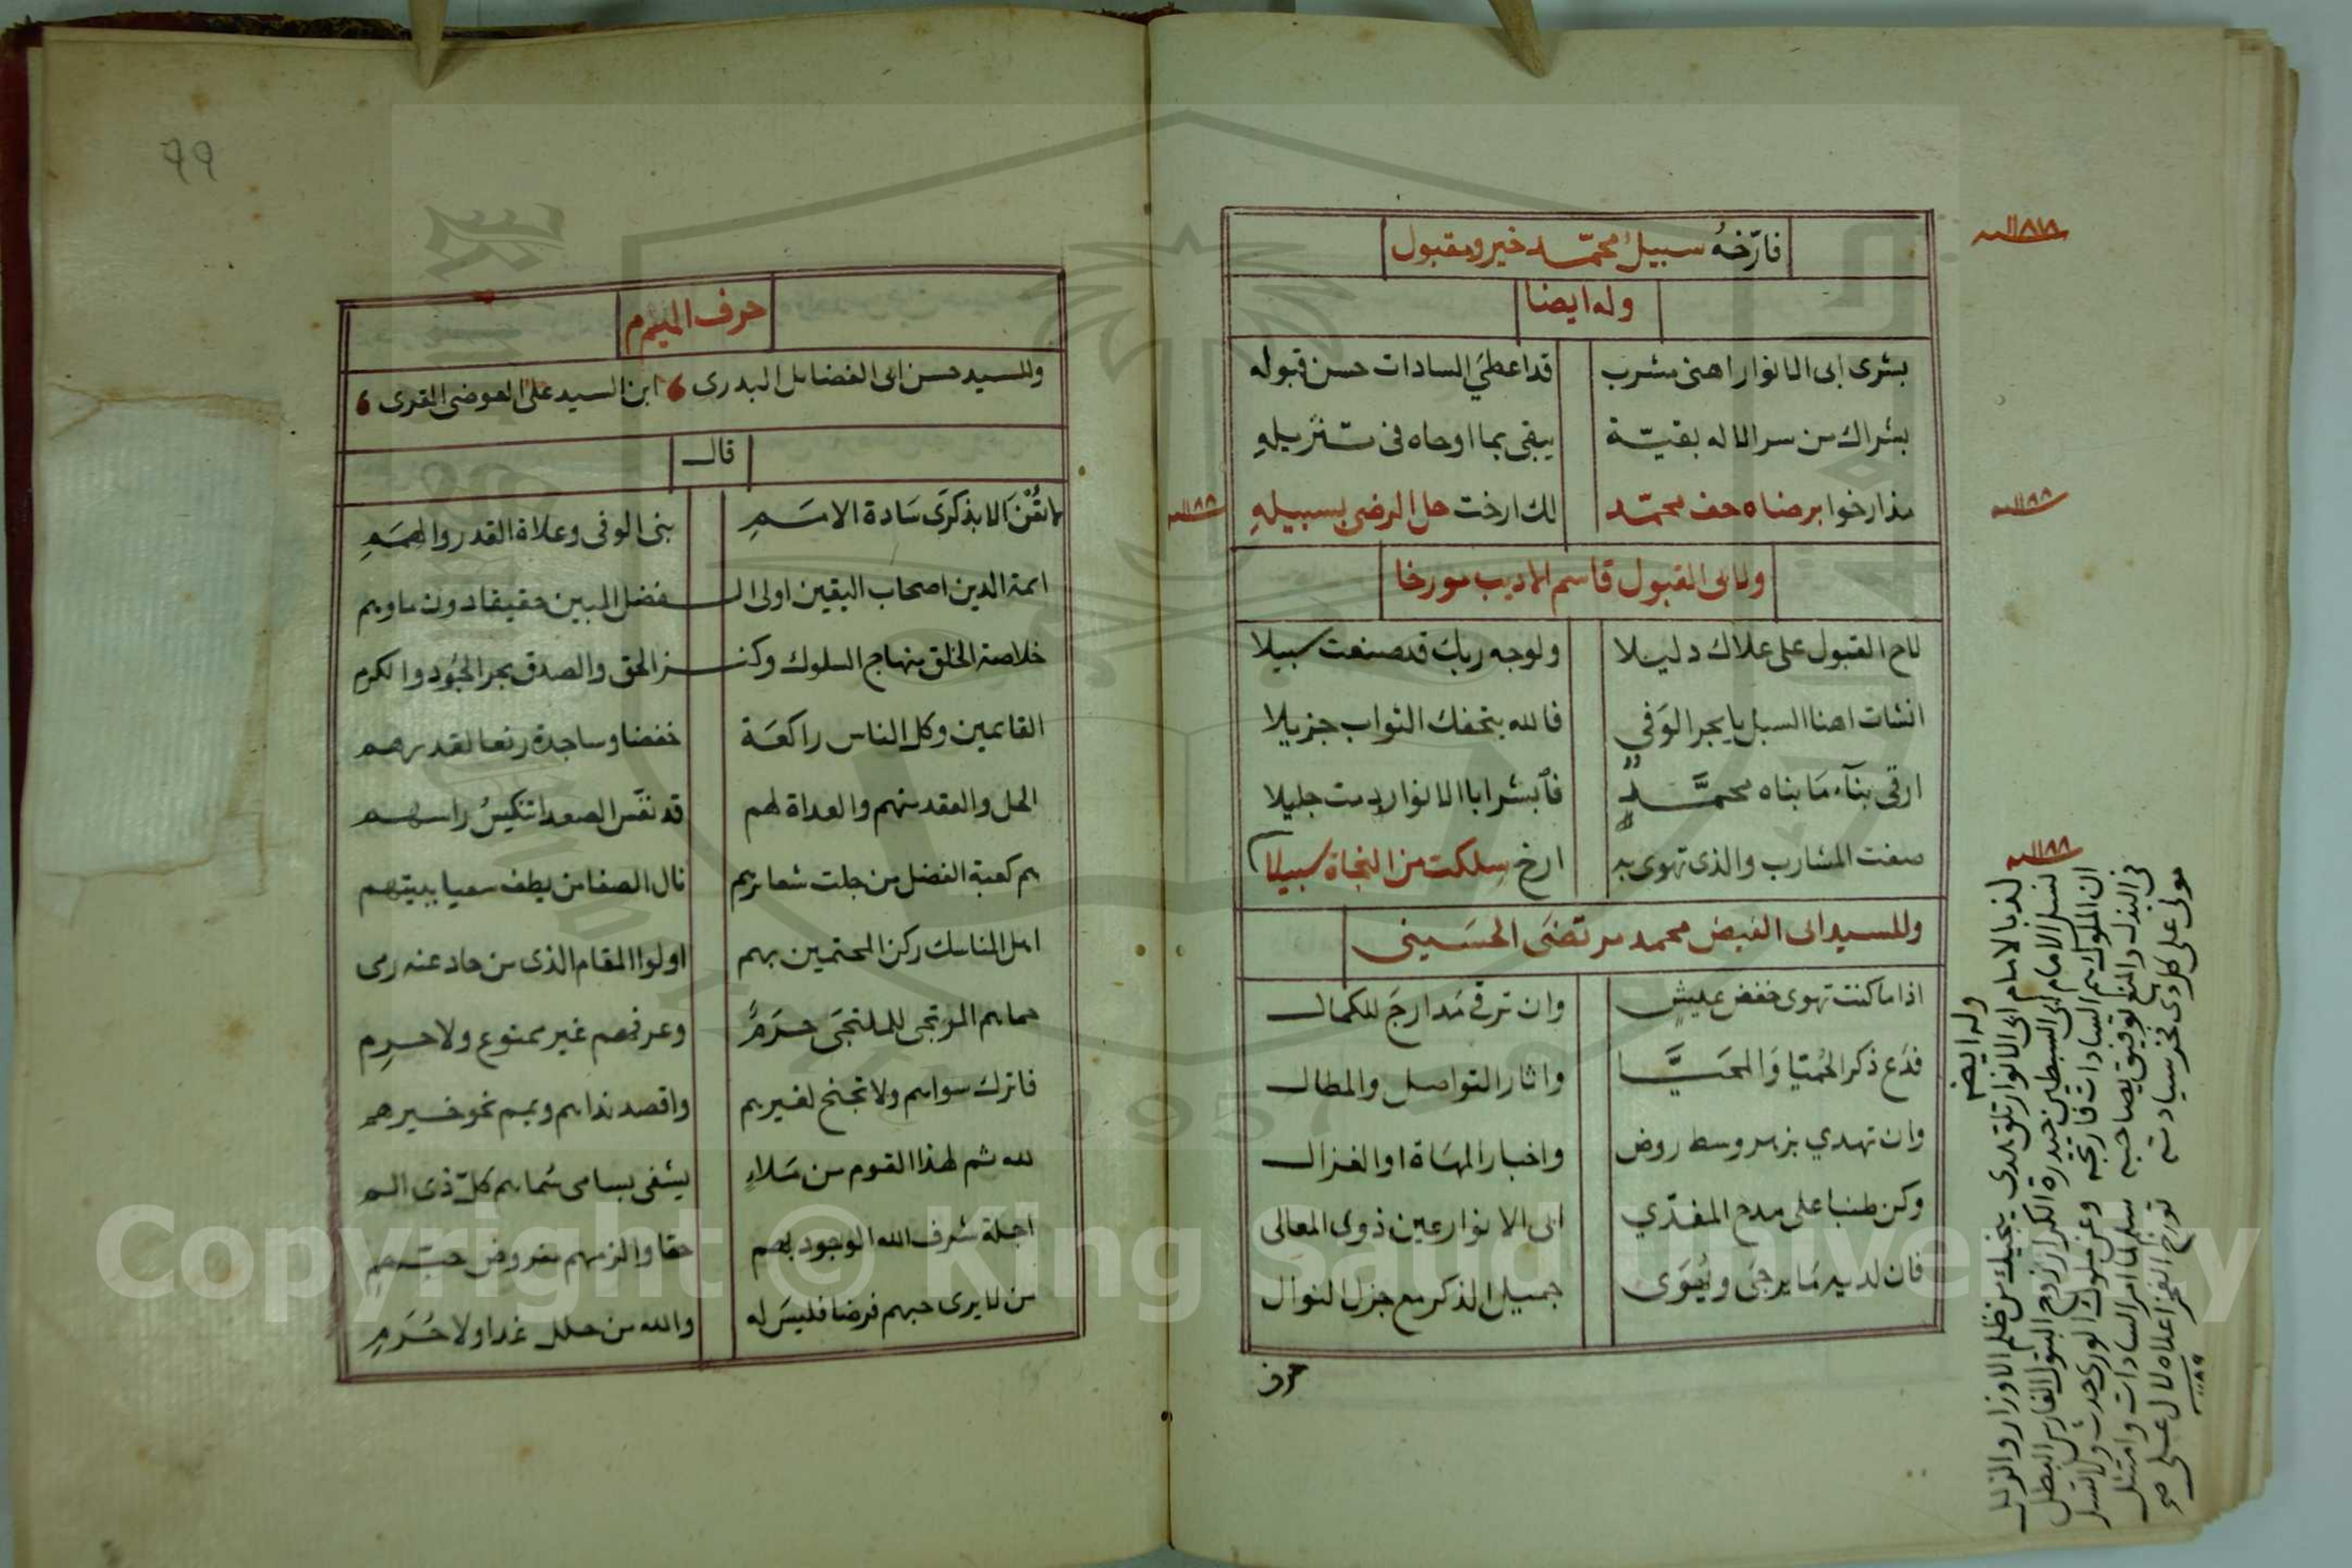 سنة ١١٨٨
فارّخهُ سبيل محمّد خير ومقبول
وله ايضا
بشرى ابى الانوار اهنى مشرب قد اعطي السادات حسن قبوله
بشراك من سر الاله بقيّة يبقى بما اوحاه فى تنزيلهِ
مذ ارخوا برضاه حف محمّد لك ارخت حل الرضى بسبيلهِ
سنة ١١٨٨
سنة ١١٨٨
ولابى القبول قاسم الاديب مورخا
لاح القبول على علاك دليلا ولوجه ربك قد صنعت سبيلا
انشات اهنا السبل يا بحر الوَفي فالله يتحفك الثواب جزيلا
ارقى بنآء مَا بناه محمَّدٍ فأبشر ابا الانوار دمت جليلا
صفت المشارب والذى تهوى به ارخ سلكت من النجاة سبيلا
سنة ١١٨٨
وللسيد ابى الفيض محمد مرتضَى الحسَيني
اذا ما كنت تهوى خفض عيشٍ وان ترقى مَدارجَ للكمال
فدَع ذكر الحُميّا وَالمحَيَّا واثار التواصل والمطال
وان تهدي بزهر وسط روض واخبار المهَاة او الغزال
وكن طنبا على مدح المفدّي ابى الانوار عين ذوى المعالى
فان لديه مَا يرجَى ويُنوَى جميل الذكر مع جزل النوال
حرف
وله ايضا
لذ بالامام ابى الانوار تلق هدى ينجيك من ظلم الاوزار والزلل
نسل الامام ابى السبطين حيدرة الكرار زوج البتول الفارس البطل
ان الملوك هم السادات
فى البذل والمنع توفيق يصاحبه سلم لما امر السادات وامتثل
مولى على كل ذى فخر سيادته
79
حرف الميم
وللسيد حسن ابى الفضايل البدرى ، ابن السيد على العوضى القرى ،
قال
لا تُفْنَ الا بذكرَى سَادة الامَمِ بنى الوفى وعلاة القدر والهمَمِ
ايمة الدين اصحاب اليقين اولى الـفضل المبين حقيقا دون ما وهم
خلاصة الخلق منهاج السلوك وكنـز الحق والصدق بحر الجُود والكرم
القايمين وكل الناس راكعَة خفضا وساجدة رفعا لقدرهم
الحل والعقد منهم والعداة لهم قد نفّس الصعدا تنكيسُ راسهم
هم كعبة الفضل من جلت شعايرهم نال الصفا من يطف سعيا ببيتهم
اهل المناسك ركن المحتمين بهم اولوا المقام الذى من حاد عنه رمى
حماهم المرتجى للملتجَى حرَمٌ وعرفهم غير ممنوع ولا حرم
فاترك سواهم ولا تجنح لغيرهم واقصد نداهم ويمم نحو خيرهم
لله ثم لهذا القوم من مَلاءٍ يشفى بسامى سُماهم كلّ ذى الم
اجلة شرف الله الوجود بهم حقا والزمهم مفروض حبهم
من لا يرى حبهم فرضا فليسَ له والله من حلل غدا ولا حُرَمِ